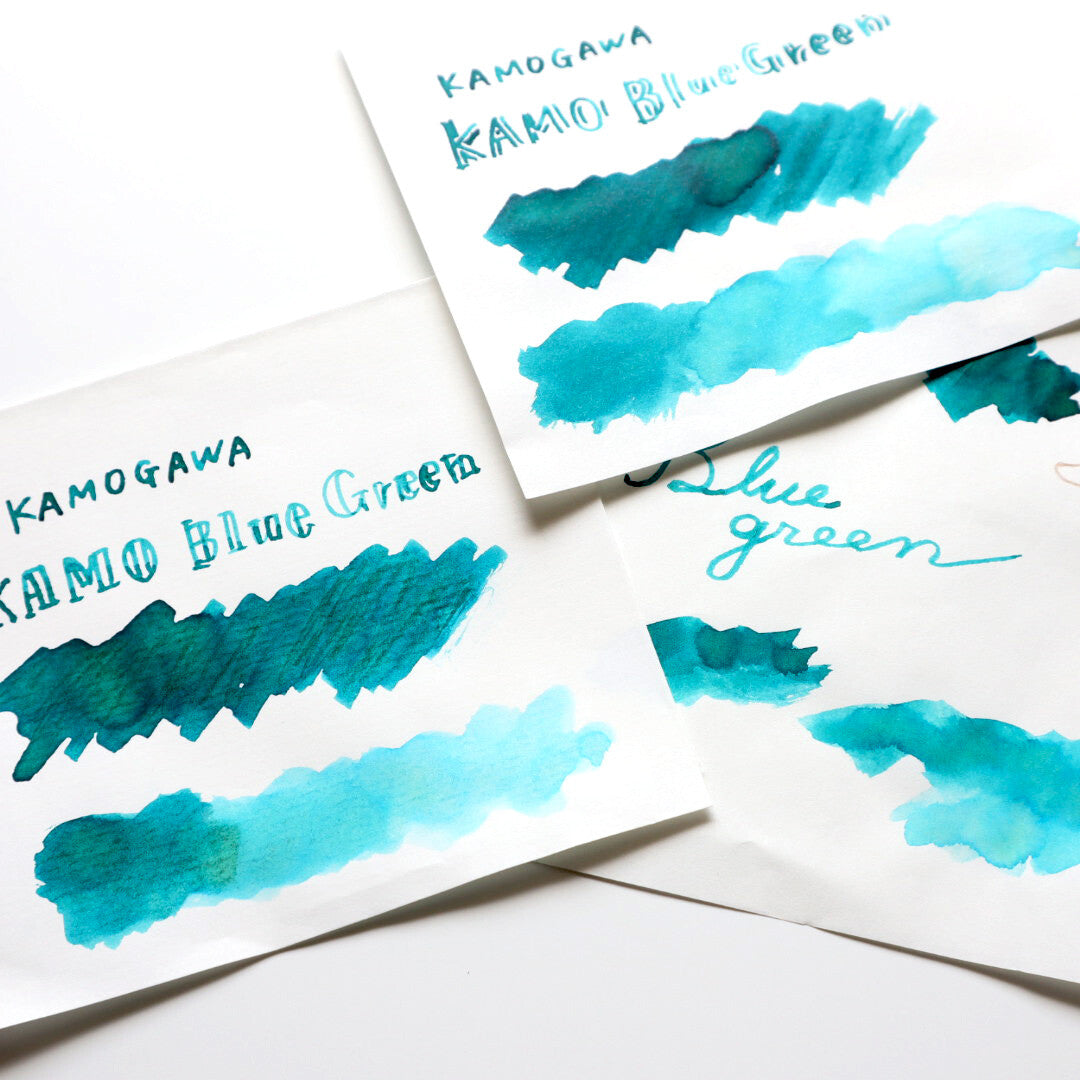 KAMOGAWA
KAMO Blue Green
KAMOGAWA
KAMO Blue Green
Blue
green